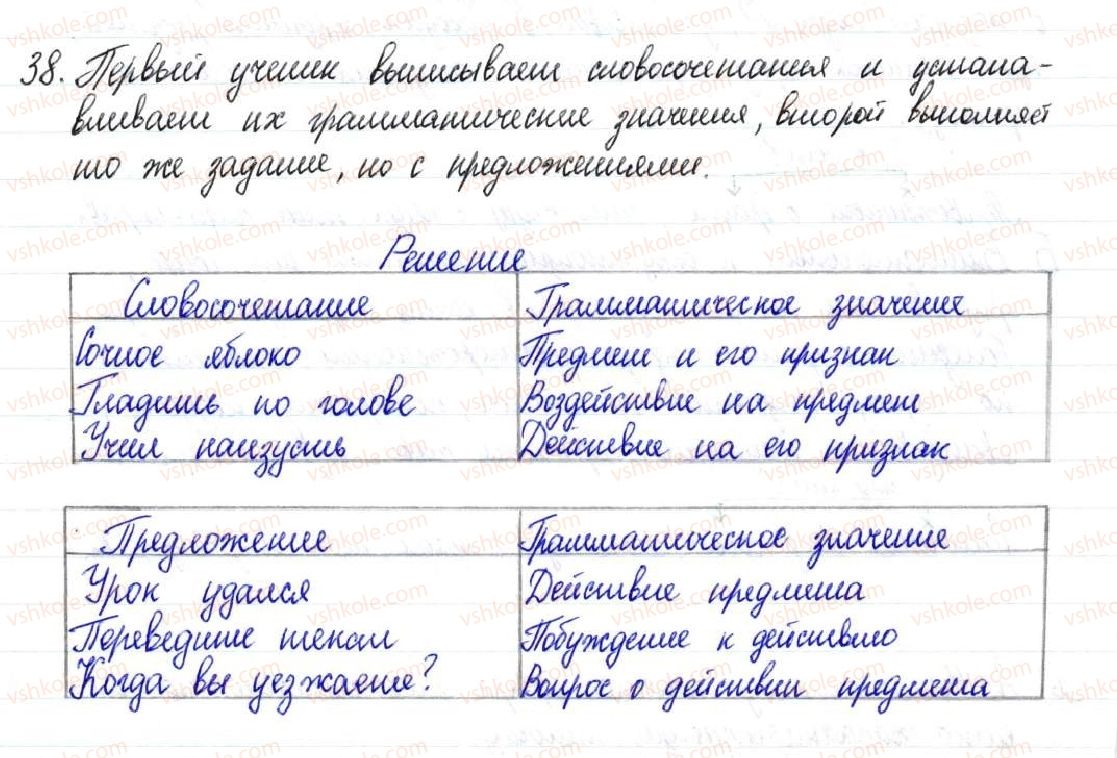 38. Первый ученик выписывает словосочетания и устана-
вливает их грамматические значения, второй выполняет
то же задание, но с предложениями.
Решение
Словосочетание Грамматическое значение
Сочное яблоко Предмет и его признак
Гладишь по голове Воздействие на предмет
Учил наизусть Действие на его признак
Предложение Грамматическое значение
Урок удался Действие предмета
Переведите текст Побуждение к действию
Когда вы уезжаете? Вопрос о действии предмета
vshkole.com